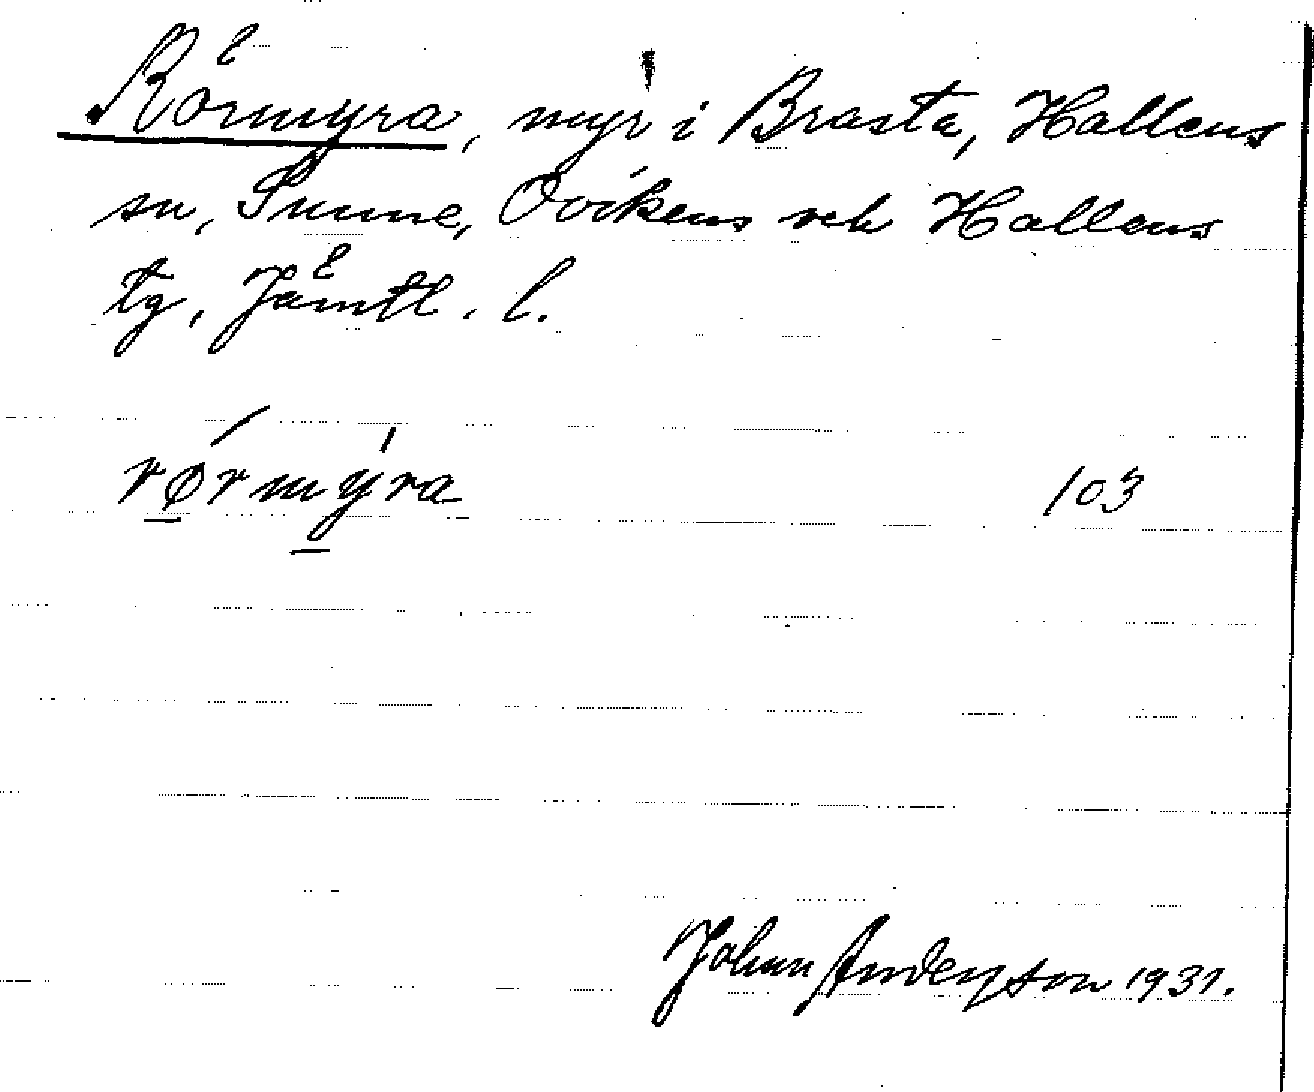 Rörmyra, myr i Brasta, Hallens
sn, Sunne, Ovikens och Hallens
tg, Jämtl. l.
rørmyra
103
Johan Anderson 1931.